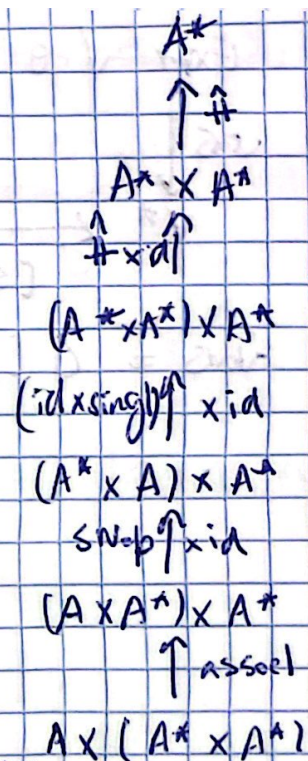 A*
↑ \hat{++}
A* × A*
\hat{++} × id ↑
(A* × A*) × A*
(id × singl) ↑ × id
(A* × A) × A*
swap ↑ × id
(A × A*) × A*
↑ assocl
A × (A* × A*)